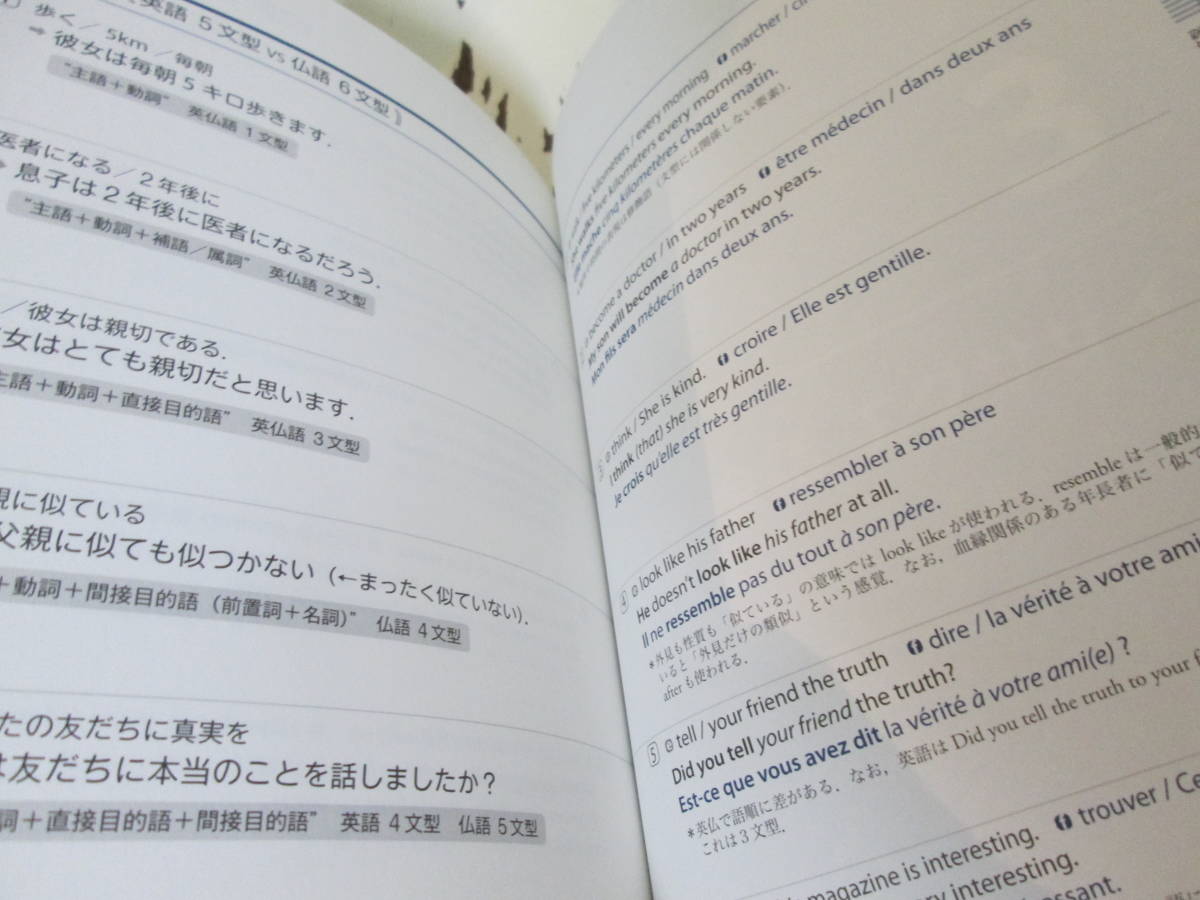 英語 5文型 vs 仏語 6文型》
歩く／5km／毎朝
⇒ 彼女は毎朝5キロ歩きます.
"主語＋動詞" 英仏語 1文型
医者になる／2年後に
息子は2年後に医者になるだろう.
"主語＋動詞＋補語／属詞" 英仏語 2文型
／彼女は親切である.
女はとても親切だと思います.
主語＋動詞＋直接目的語" 英仏語 3文型
親に似ている
父親に似ても似つかない (←まったく似ていない).
＋動詞＋間接目的語（前置詞＋名詞）" 仏語 4文型
たの友だちに真実を
は友だちに本当のことを話しましたか?
詞＋直接目的語＋間接目的語" 英語 4文型 仏語 5文型
kilometers / every morning f marcher /
walks five kilometers every morning.
cinq kilomètres chaque matin.
（文型には関係しない要素）.
become a doctor / in two years f être médecin / dans deux ans
My son will become a doctor in two years.
Mon fils sera médecin dans deux ans.
③ e think / She is kind. f croire / Elle est gentille.
I think (that) she is very kind.
Je crois qu'elle est très gentille.
④ e look like his father f ressembler à son père
He doesn't look like his father at all.
Il ne ressemble pas du tout à son père.
＊外見も性質も「似ている」の意味では look like が使われる. resemble は一般的
いると「外見だけの類似」という感覚. なお, 血縁関係のある年長者に「似
after も使われる.
⑤ e tell / your friend the truth f dire / la vérité à votre ami
Did you tell your friend the truth?
Est-ce que vous avez dit la vérité à votre ami(e) ?
＊英仏で語順に差がある. なお, 英語は Did you tell the truth to your
これは3文型.
magazine is interesting. f trouver / Ce
interesting.